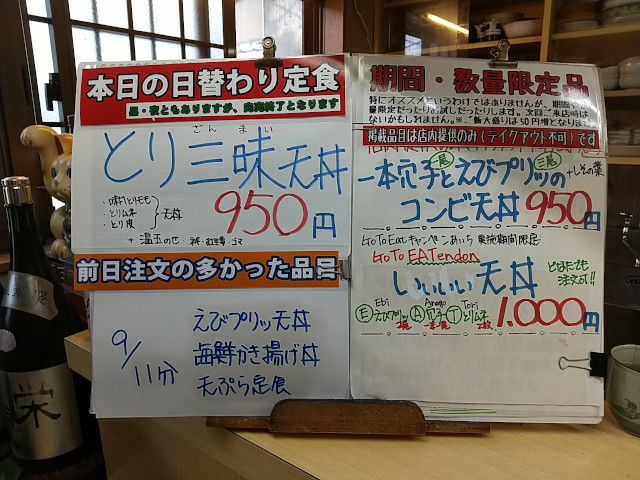 本日の日替わり定食
昼・夜ともありますが、完売終了となります
ざんまい
とり三昧天丼
・味付とりもも
・とりムネ
・とり皮
天丼
950円
+ 温玉のせ
前日注文の多かった品目
9/11分
えびプリッ天丼
海鮮かき揚げ丼
天ぷら定食
期間・数量限定品
特にオススメというわけではありませんが、期間や
量限定だったりお試しだったりします。次回ご来店時は
ないかもしれません。※ご飯大盛りは50円増となります
掲載品目は店内提供のみ(テイクアウト不可)です
一本穴子とえびプリッの
二尾
+しその葉
コンビ天丼 950円
GoToEatキャンペーンあいち 実施期間限定
GoTo EATendon
いいいい天丼
どなたでも
注文可!!
Ebi Anago Tori
Ⓔえびプリッ Ⓐ穴子 Ⓣとりムネ
一本 2枚
1.000円
栄